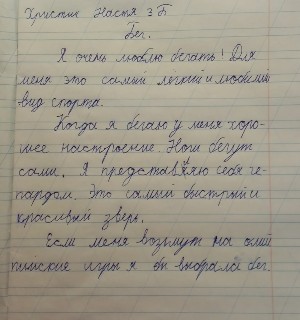 Христич Настя 3 Б
Бег.
Я очень люблю бегать! Для
меня это самый легкий и любимый
вид спорта.
Когда я бегаю у меня хоро-
шее настроение. Ноги бегут
сами. Я представляю себя ге-
пардом. Это самый быстрый и
красивый зверь.
Если меня возьмут на олим
пийские игры я бы выбрала бег.